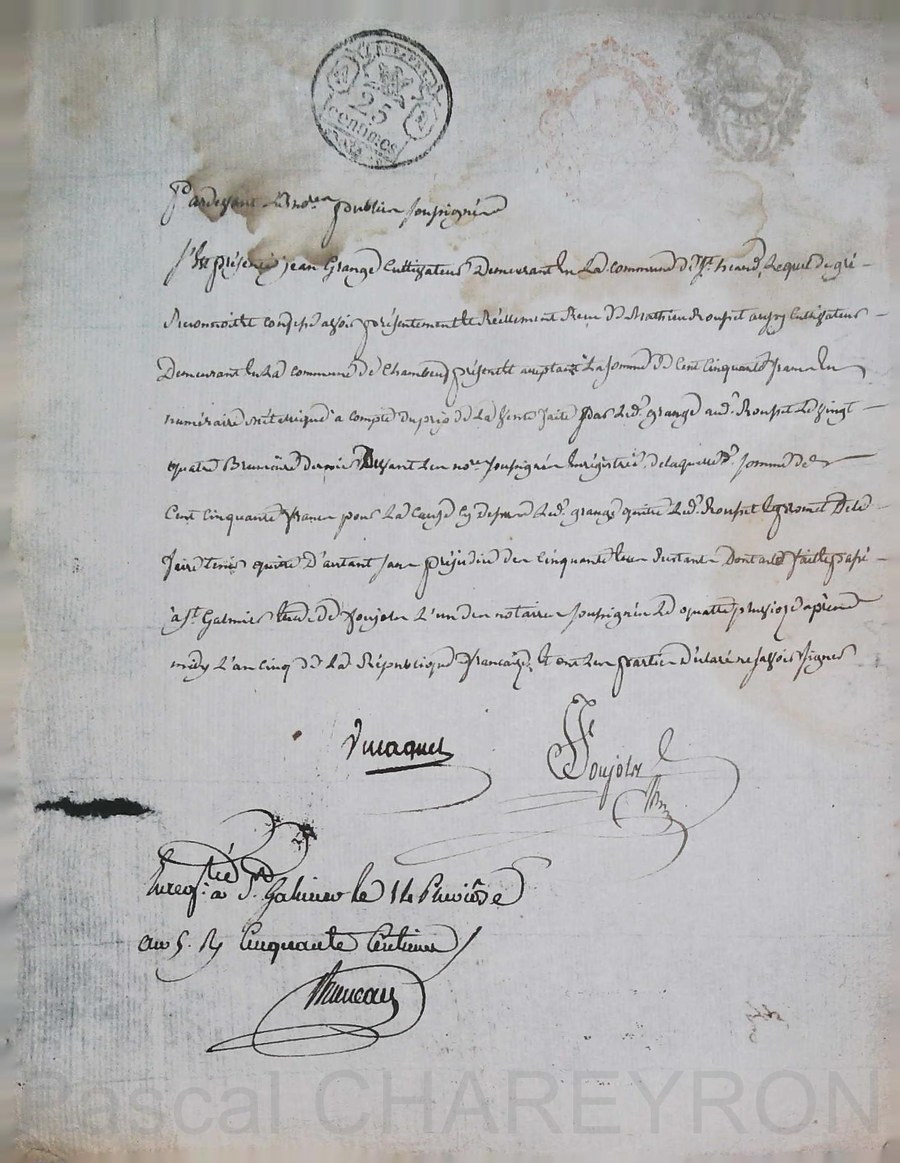 25
centimes
Pardevant les no.res publics soussignés
S'est présenté jean Grange Cultivateur Demeurant en La commune de St. heand, Lequel de gré
Reconnoit et confesse avoir présentement et Réellement Reçu de Mathieu Rousset aussy Cultivateur
Demeurant en La commune de Chambeuf présent et acceptant La somme de Cent Cinquante francs en
numéraire métallique à compte du prix de La vente faite par Led. grange aud. Rousset Le vingt
quatre Brumaire dernier Devant Les no.res soussignés Enregistrée, de laquelle d. somme de
Cent Cinquante francs pour La cause cy Dessus Led. grange quitte Led. Rousset et promet De le
faire tenir quitte D'autant sans préjudice des Cinquante Dont acte fait et passé
à St. Galmier Etude de Poujolz L'un des notaires soussignés Le quatre pluviose après
midy L'an cinq de La République francaise, et ont Les parties Déclaré ne savoir signer
Poujolz
Enreg.tré à St. Galmier le 14 Pluviose
an 5. R Cinquante Centimes
Pascal CHAREYRON